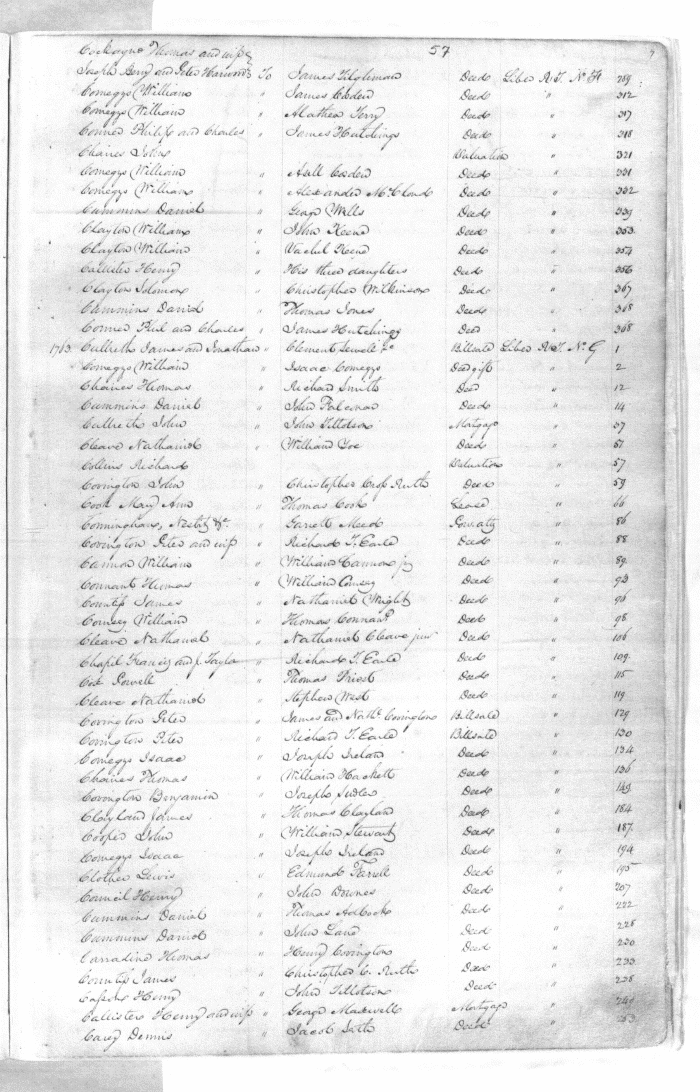 57 7
Cockayne Thomas and wife
Joseph Berry and Peter Harwood To James Tilghman Deed Liber R.T. No. F 309
Comegys William " James Deed " 312
Comegys William " Mathew Terry Deed " 317
Conner Philip and Charles " James Hutchings Deed " 318
Chaires John Valuation " 321
Comegys William " Deed " 331
Comegys William " Alexander McCloud Deed " 332
Cummins Daniel " George Wells Deed " 339
Clayton William " John Keene Deed " 353
Clayton William " Vachel Keene Deed " 354
Callister Henry " His three daughters Deed " 356
Clayton Solomon " Christopher Wilkinson Deed " 367
Cummins Daniel " Thomas Jones Deed " 368
Conner Phil and Charles " James Hutchings Deed " 368
1763. Culbreth James and Jonathan " Clement Sewell Billsale Liber R.T. No. G 1
Comegys William " Isaac Comegys Deed gift " 2
Chaires Thomas " Richard Smith Deed " 12
Cummins Daniel " John Falconar Deed " 14
Culbreth John " John Tillotson Mortgage " 37
Cleave Nathaniel " William Coe Deed " 51
Collins Richard Valuation " 57
Covington John " Christopher Cross Ruth Deed " 59
Cook Mary Ann " Thomas Cook Lease " 66
Conningham, Nesbit &c. " Garrett Meed " 86
Covington Peter and wife " Richard T. Earle Deed " 88
Cannon William " William Cannon jr Deed " 89
Connant Thomas " William Comsey Deed " 93
Countiss James " Nathaniel Wright Deed " 96
Comsey William " Thomas Connant Deed " 98
Cleave Nathaniel " Nathaniel Cleave junr Deed " 106
Chapil Francis and J. Taylor " Richard T. Earle Deed " 109
Cox Powell " Thomas Priest Deed " 115
Cleave Nathaniel " Stephen West Deed " 119
Covington Peter " James and Nathl. Covington Billsale " 129
Covington Peter " Richard T. Earle Billsale " 130
Comegys Isaac " Joseph Ireland Deed " 134
Chaires Thomas " William Hackett Deed " 136
Covington Benjamin " Joseph Sudler Deed " 149
Clayland James " Thomas Clayland Deed " 184
Cooper John " William Stewart Deed " 187
Comegys Isaac " Joseph Ireland Deed " 194
Clother Lewis " Edmund Ferrell Deed " 195
Council Henry " John Downes Deed " 207
Cummins Daniel " Thomas Adcock Deed " 222
Cummins Daniel " John Land Deed " 228
Carradine Thomas " Henry Covington Deed " 230
Countiss James " Christopher C. Ruth Deed " 233
Henry " John Tillotson Deed " 238
Callister Henry and wife " George Maxwell Mortgage " 240
Carey Dennis " Jacob Seth Deed "